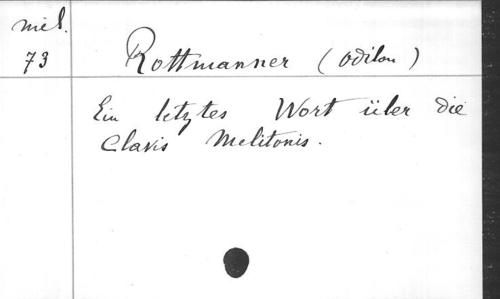 Mél.
73
Rottmanner (Odilon)
Ein letztes Wort über die
Clavis Melitonis.